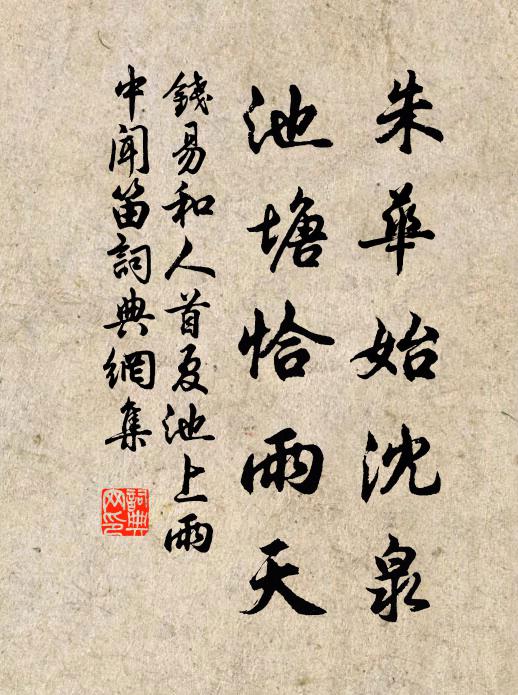 朱華始沈泉
池塘恰雨天
錢易和人首夏池上雨
中聞笛詞典網集
詞典
网印